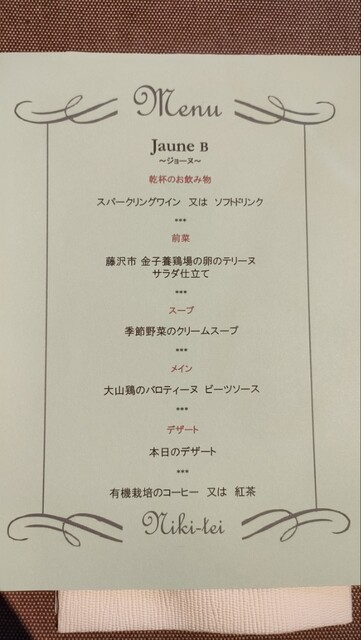 Menu
Jaune B
～ジョーヌ～
乾杯のお飲み物
スパークリングワイン 又は ソフトドリンク
***
前菜
藤沢市 金子養鶏場の卵のテリーヌ
サラダ仕立て
***
スープ
季節野菜のクリームスープ
***
メイン
大山鶏のバロティーヌ ビーツソース
***
デザート
本日のデザート
***
有機栽培のコーヒー 又は 紅茶
Niki-tei